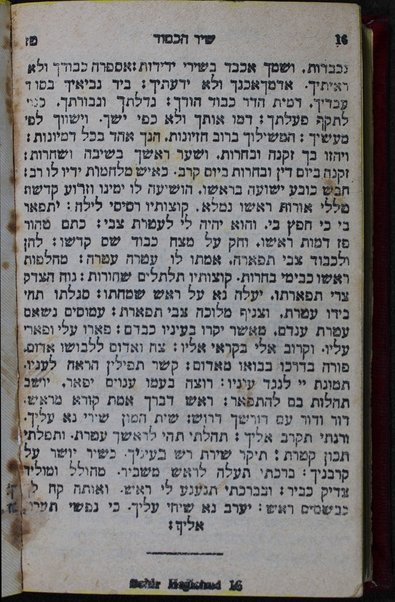 16 שיר הכבוד טז
נכבדות, ושמך אכבד בשירי ידידות: אספרה כבודך ולא
ראיתיך, אדמך אכנך ולא ידעתיך: ביד נביאיך בסוד
עבדיך, דמית הדר כבוד הודך: גדלתך וגבורתך, כנו
לתקף פעלתך: דמו אותך ולא כפי ישך, וישווך לפי
מעשיך: המשילוך ברוב חזיונות, הנך אחד בכל דמיונות:
ויחזו בך זקנה ובחרות, ושער ראשך בשיבה ושחרות:
זקנה ביום דין ובחרות ביום קרב, כאיש מלחמות ידיו לו רב:
חבש כובע ישועה בראשו, הושיעה לו ימינו וזרוע קדשו:
טללי אורות ראשו נמלא, קוצותיו רסיסי לילה: יתפאר
בי כי חפץ בי, והוא יהיה לי לעטרת צבי: כתם טהור
פז דמות ראשו, וחק על מצח כבוד שם קדשו: לחן
ולכבוד צבי תפארה, אמתו לו עטרה עטרה: מחלפות
ראשו כבימי בחרות, קוצותיו תלתלים שחורות: נוה הצדק
צבי תפארתו, יעלה נא על ראש שמחתו: סגלתו תהי
בידו עטרת, וצניף מלוכה צבי תפארת: עמוסים נשאם
עטרת ענדם, מאשר יקרו בעיניו כבדם: פארו עלי ופארי
עליו, וקרוב אלי בקראי אליו: צח ואדום ללבושו אדום,
פורה בדרכו בבואו מאדום: קשר תפילין הראה לעניו,
תמונת יי לנגד עיניו: רוצה בעמו ענוים יפאר, יושב
תהלות בם להתפאר: ראש דברך אמת קורא מראש,
דור ודור עם דורשך דרוש: שית המון שירי נא עליך,
ורנתי תקרב אליך: תהלתי תהי לראשך עטרת, ותפלתי
תכון קטרת: תיקר שירת רש בעיניך, כשיר יושר על
קרבניך: ברכתי תעלה לראש משביר, מחולל ומוליד
צדיק כביר: ובברכתי תנענע לי ראש, ואותה קח לך
כבשמים ראש: יערב נא שיחי עליך, כי נפשי תערוג
אליך:
Schir Hakubud 16